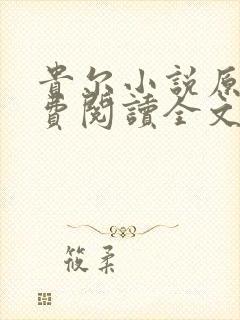 貴尔小説原
費閱讀全文
筱柔